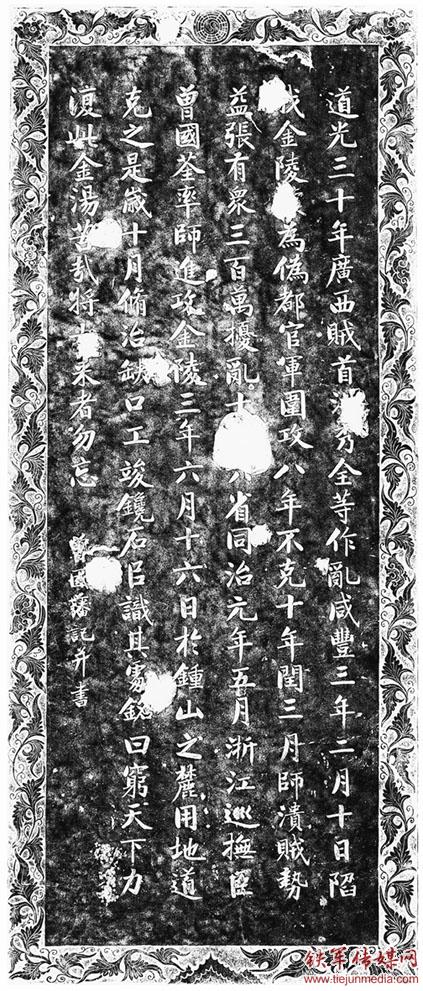 道光三十年廣西賊首秀全等作亂咸豐三年二月十日陷
我金陵為偽都官軍圍攻八年不克十年閏三月師潰賊勢
益張有眾三百萬擾亂十省同治元年五月浙江巡撫臣
曾國荃率師進攻金陵三年六月十六日於鍾山之麓用地道
克之是歲十月脩治缺口工竣鑱石以識其處銘曰窮天下力
復此金湯苦哉將士來者勿忘
曾國藩記并書
铁军传媒网
www.tiejunmedia.com